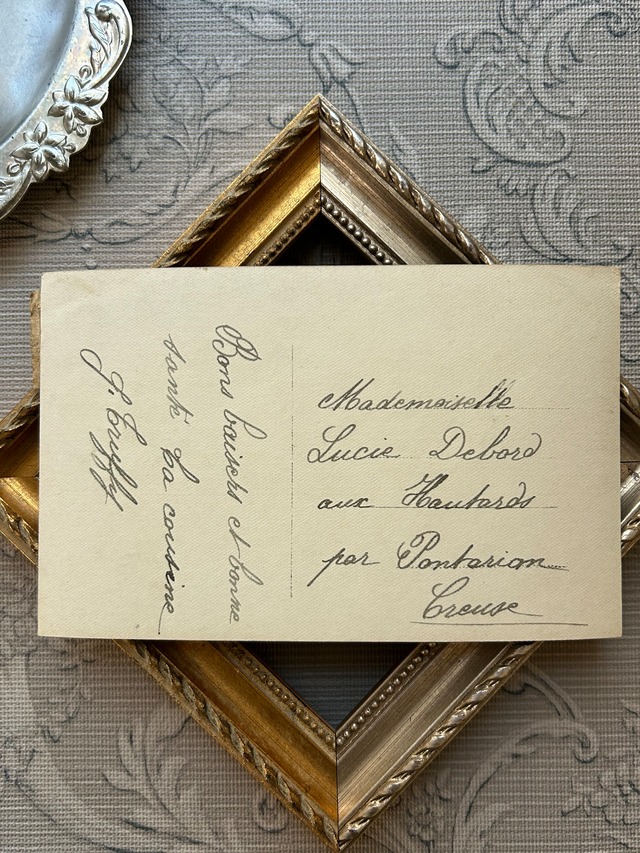 Bons baisers et bonne
santé ta cousine
Mademoiselle
Lucie Debord
aux Hautards
par Pontarion
Creuse